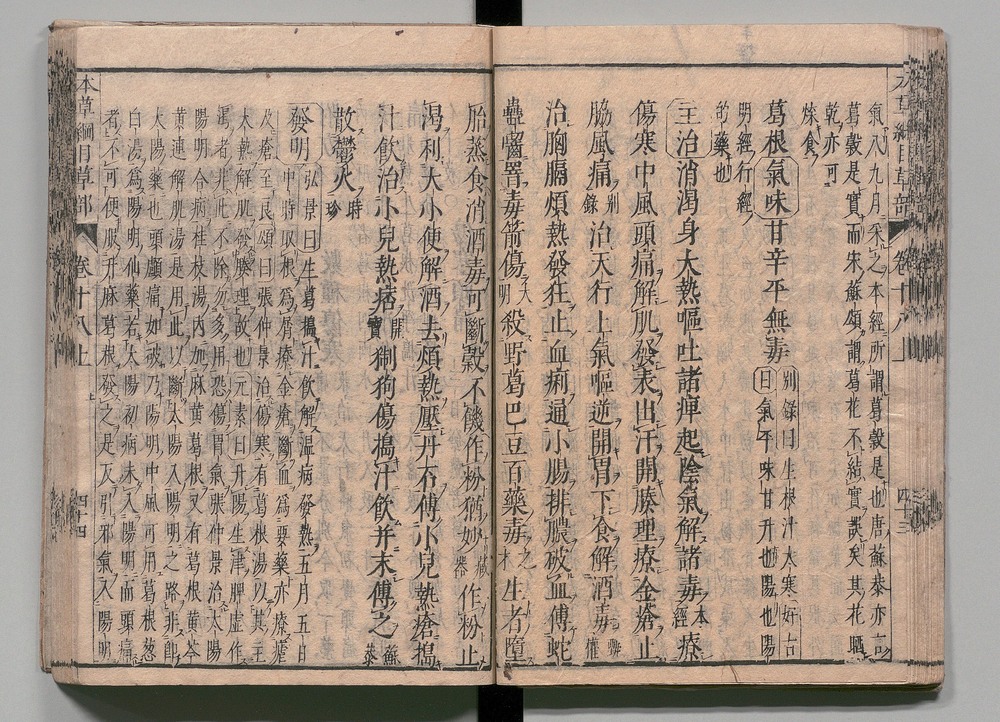 本草綱目草部 卷十八上 四十三
氣八九月采之本經所謂葛穀是也唐蘇恭亦言
葛穀是實而宋蘇頌謂葛花不結實誤矣其花曬
乾亦可
煠食
葛根氣味甘辛平無毒
別錄曰生根汁大寒好古
曰氣平味甘升也陽也陽
明經行經
的藥也
主治消渴身大熱嘔吐諸痺起陰氣解諸毒本經療
傷寒中風頭痛解肌發表出汗開腠理療金瘡止
脇風痛別錄治天行上氣嘔逆開胃下食解酒毒甄權
治胸膈煩熱發狂止血痢通小腸排膿破血傅蛇
蟲嚙罯毒箭傷大明殺野葛巴豆百藥毒之才生者墮
胎蒸食消酒毒可斷穀不饑作粉猶妙藏器作粉止
渴利大小便解酒去煩熱壓丹石傅小兒熱瘡搗
汁飲治小兒熱痞開寶猘狗傷搗汁飲并末傅之蘇恭
散鬱火時珍
發明弘景曰生葛搗汁飲解温病發熱五月五日
日中時取根為屑療金瘡斷血為要藥亦療瘧
及瘡至良頌曰張仲景治傷寒有葛根湯以其主
大熱解肌發腠理故也元素曰升陽生津脾虛作
渴者非此不除勿多用恐傷胃氣張仲景治太陽
陽明合病桂枝湯內加麻黃葛根又有葛根黃芩
黃連解肌湯是用此以斷太陽入陽明之路非即
太陽藥也頭顱痛如破乃陽明中風可用葛根葱
白湯為陽明仙藥若太陽初病未入陽明而頭痛
者不可便服升麻葛根發之是反引邪氣入陽明
本草綱目草部 卷十八上 四十四